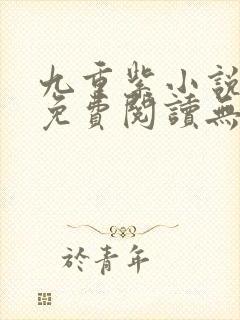 九重紫小說
免費閱讀無
於青年